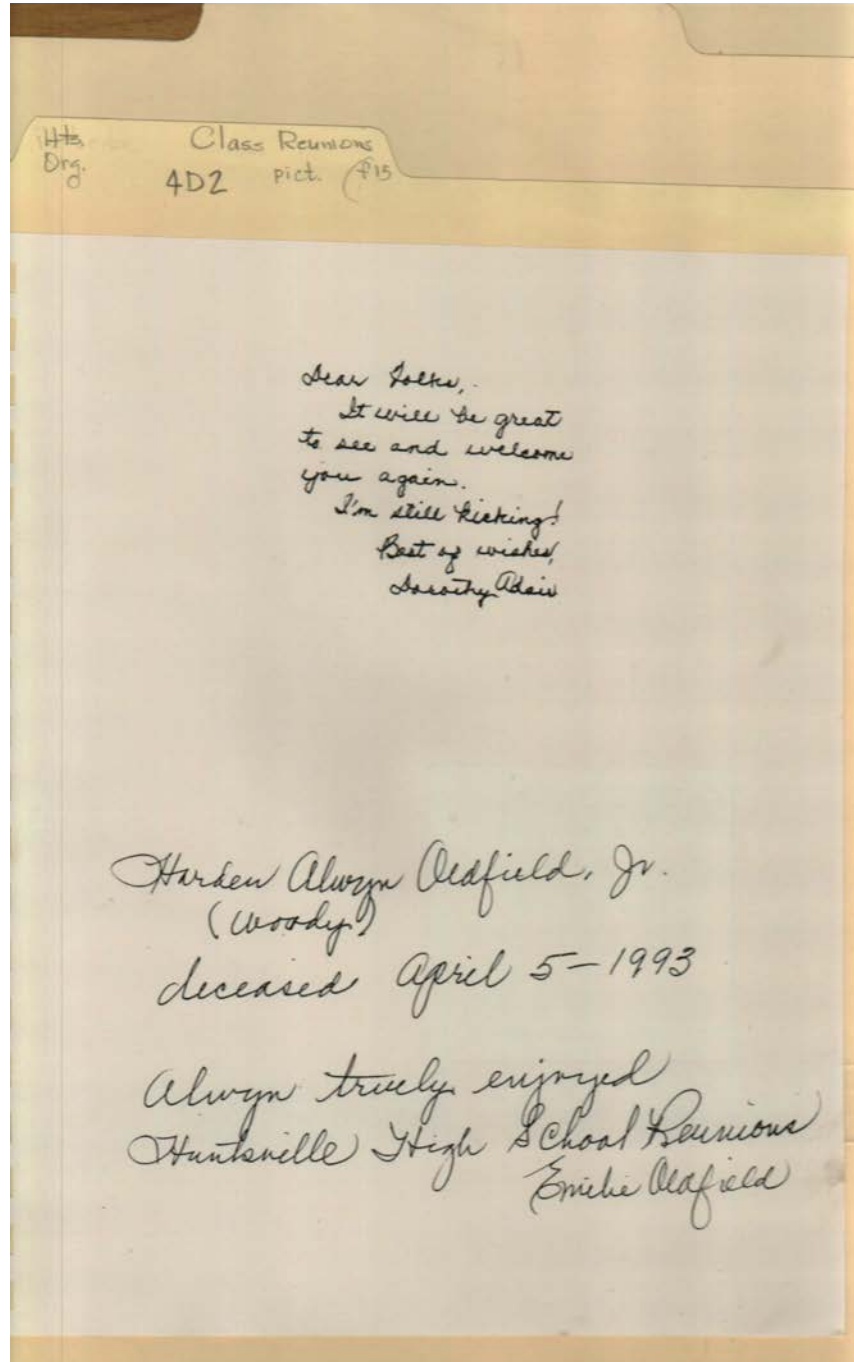 Hts. Class Reunions
Org. 4D2 pict. P15
Dear Folks,
It will be great
to see and welcome
you again.
I'm still kicking!
Best of wishes,
Dorothy Adair
Harden Alwyn Oldfield, Jr.
(Woody)
deceased April 5-1993
Alwyn truely enjoyed
Huntsville High School Reunions
Emilie Oldfield